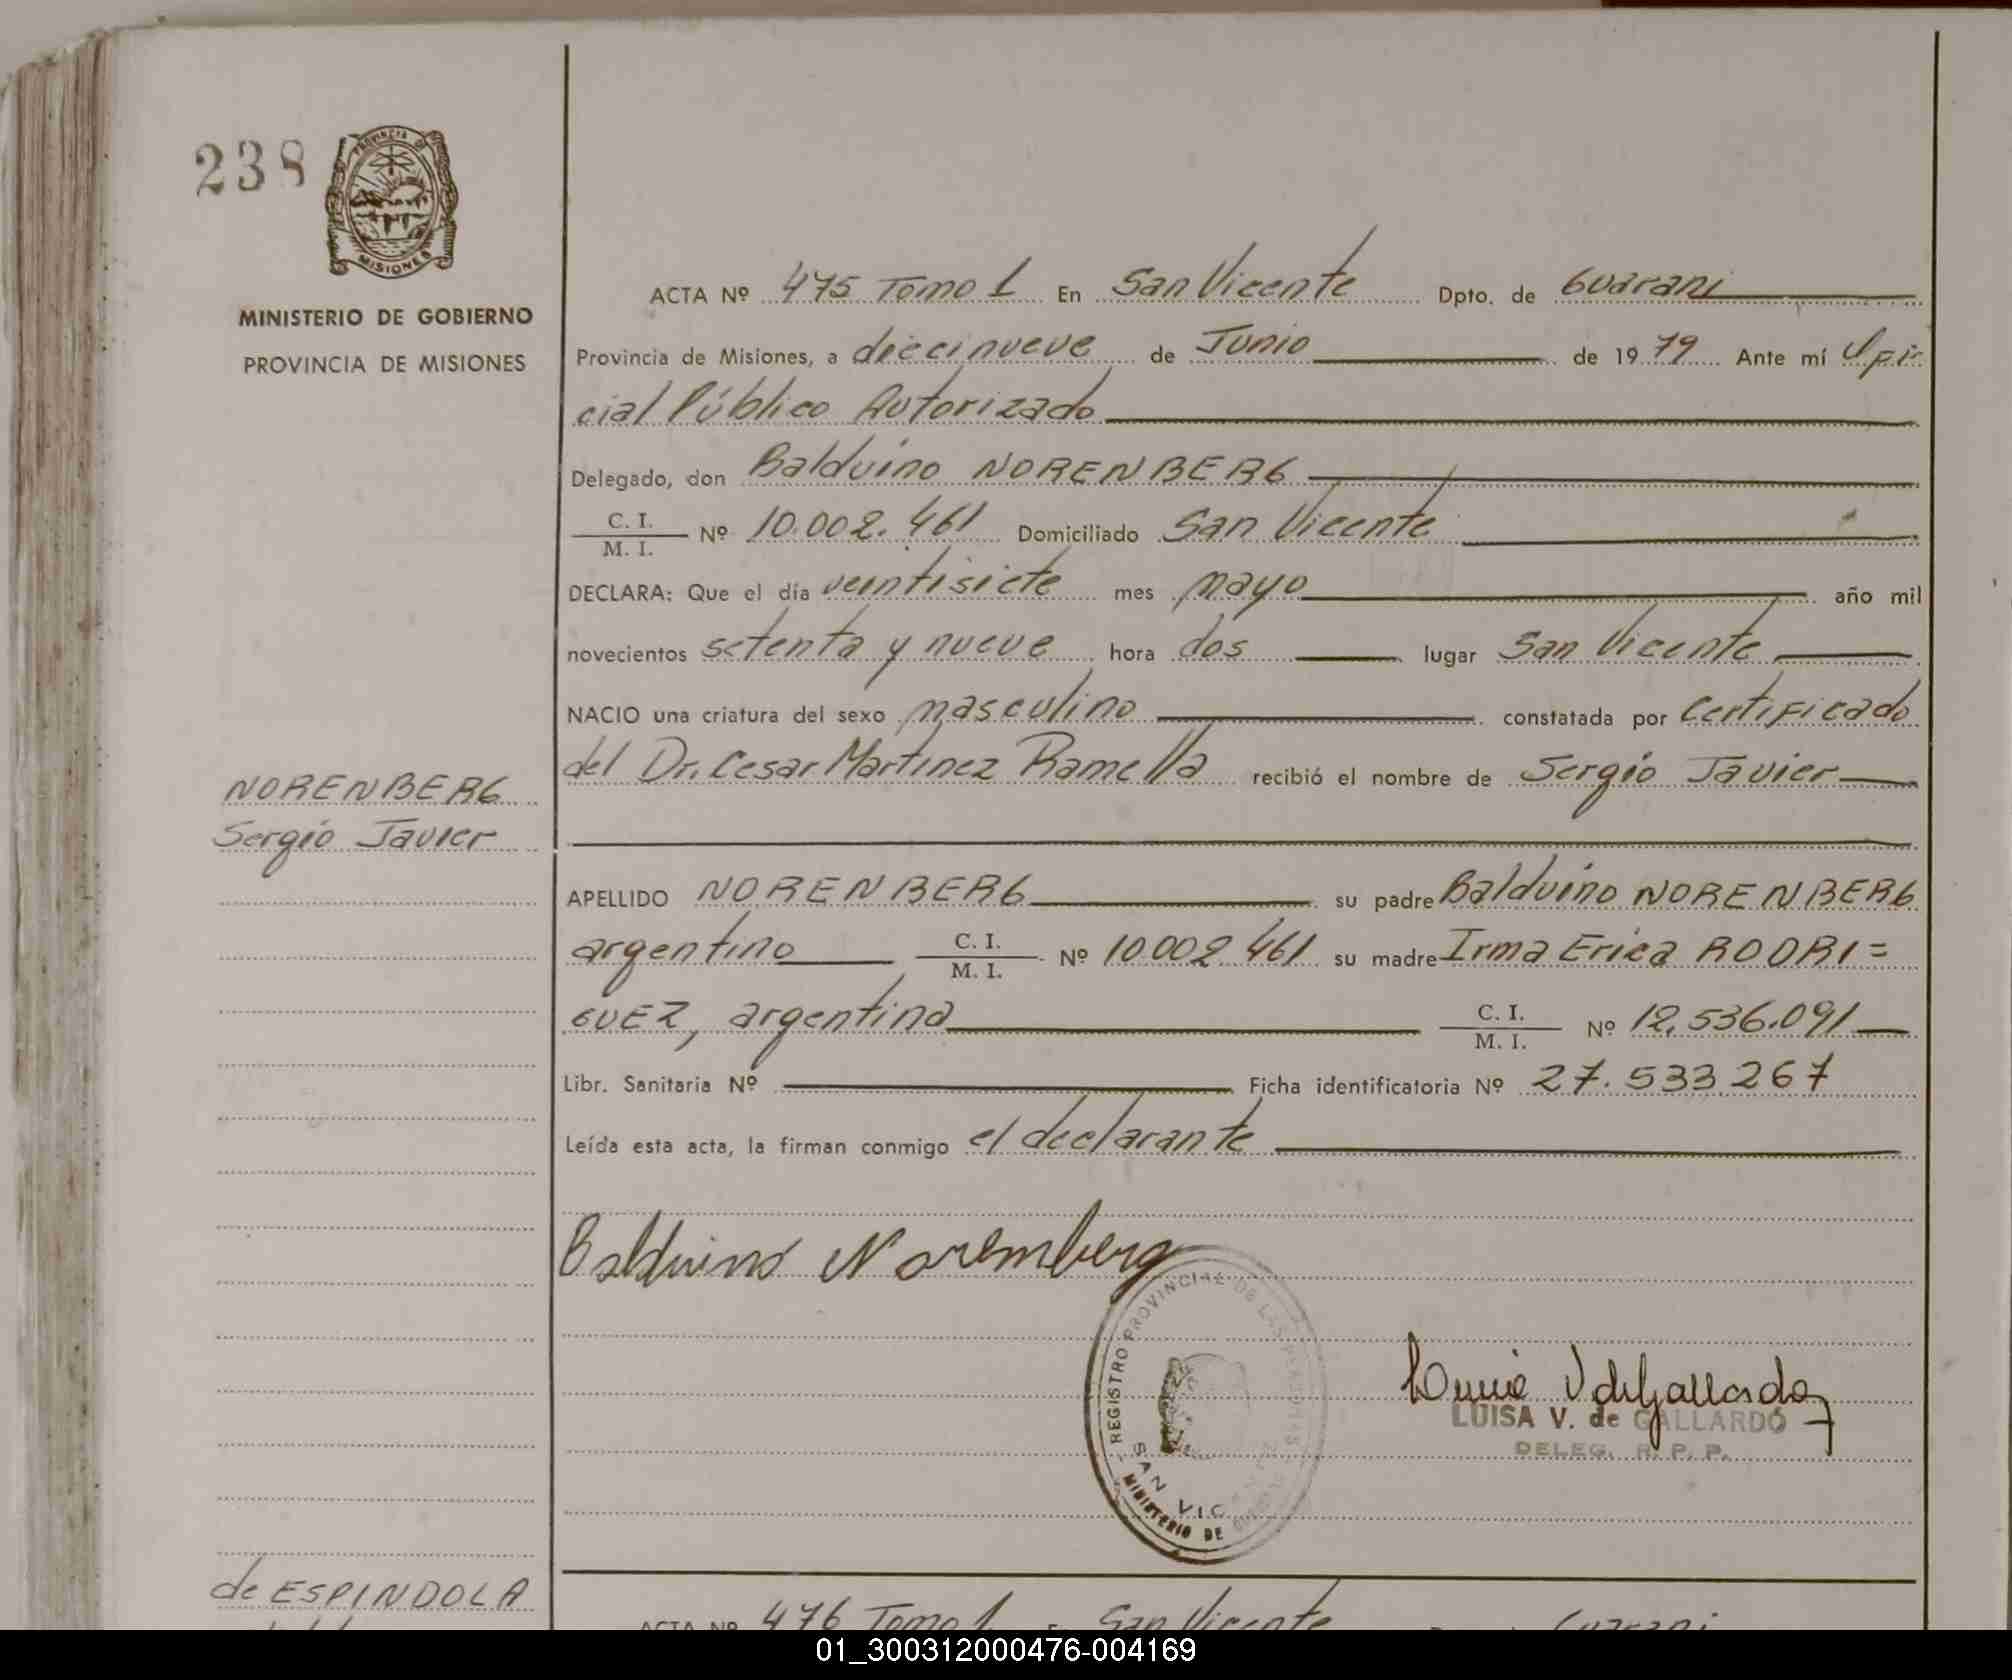 238
PROVINCIA DE
MISIONES
MINISTERIO DE GOBIERNO
PROVINCIA DE MISIONES
ACTA Nº 475 Tomo 1 En San Vicente Dpto. de Guarani
Provincia de Misiones, a diecinueve de Junio de 1979 Ante mí Ofi-
cial Público Autorizado
Delegado, don Balduino NORENBERG
C. I. / M. I. Nº 10.002.461 Domiciliado San Vicente
DECLARA: Que el día veintisiete mes mayo año mil
novecientos setenta y nueve hora dos lugar San Vicente
NACIO una criatura del sexo masculino constatada por Certificado
del Dr. Cesar Martinez Ramella recibió el nombre de Sergio Javier
NORENBERG
Sergio Javier
APELLIDO NORENBERG su padre Balduino NORENBERG
argentino C. I. / M. I. Nº 10.002.461 su madre Irma Erica RODRI=
GUEZ, argentina C. I. / M. I. Nº 12.536.091
Libr. Sanitaria Nº Ficha identificatoria Nº 27.533.267
Leída esta acta, la firman conmigo el declarante
Balduino Noremberg
REGISTRO PROVINCIAL DE LAS PERSONAS
SAN VIC
MINISTERIO DE
Luisa V de Gallardo
LUISA V. de GALLARDO
DELEG. R. P. P.
de ESPINDOLA
ACTA Nº 476 Tomo 1 San Vicente Guarani
01_300312000476-004169